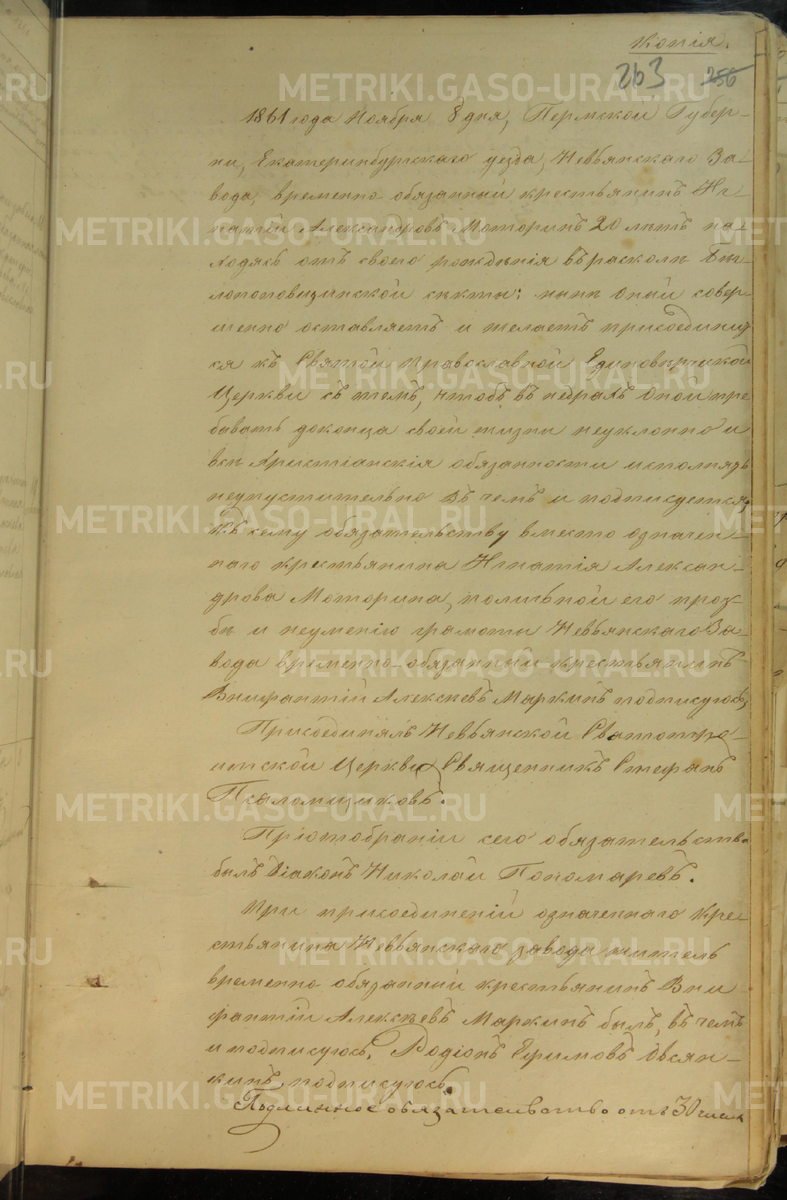 Копія.
263 256
1861 года Ноября 8 дня, Пермской Губер-
ни, Екатеринбургскаго уезда, Невьянскаго За-
вода, временно-обязанный крестьянинъ Иг-
натій Александровъ Моторинъ 20 летъ на-
ходясь отъ своего рожденія въ расколе Бег-
лопоповщинской секты; ныне оный совер-
шенно оставляетъ и желаетъ присоединит-
ся къ Святой Православной Единоверческой
Церкви съ темъ, чтобъ въ недрахъ оной пре
бывать до конца своей жизни неуклонно и
все Христіанскія обязанности исполнять
неупустительно въ чемъ и подписуется,
Къ сему обязательству вместо означен-
наго крестьянина Игнатія Алексан-
дрова Моторина, по личной его прозь-
бе и неуменію грамоты Невьянскаго За-
вода временно-обязанный крестьянинъ
Внифантій Алексеевъ Маркинъ подписуюсь,
Присоединялъ Невьянской Святотро-
ицкой Церкви Священникъ Стефанъ
Псаломщиковъ.
При отобраніи сего обязательства
былъ діаконъ Николай Пономаревъ.
При присоединеній означеннаго Кре-
стьянина Невьянскаго завода житель
временно-обязанный крестьянинъ Вни
фантій Алексеевъ Маркинъ былъ, въ чемъ
и подписуюсь, Родіонъ Ефимовъ Овсян-
кинъ подписуюсь.
Подлинное обязательство отъ 30 числа
METRIKI.GASO-URAL.RU